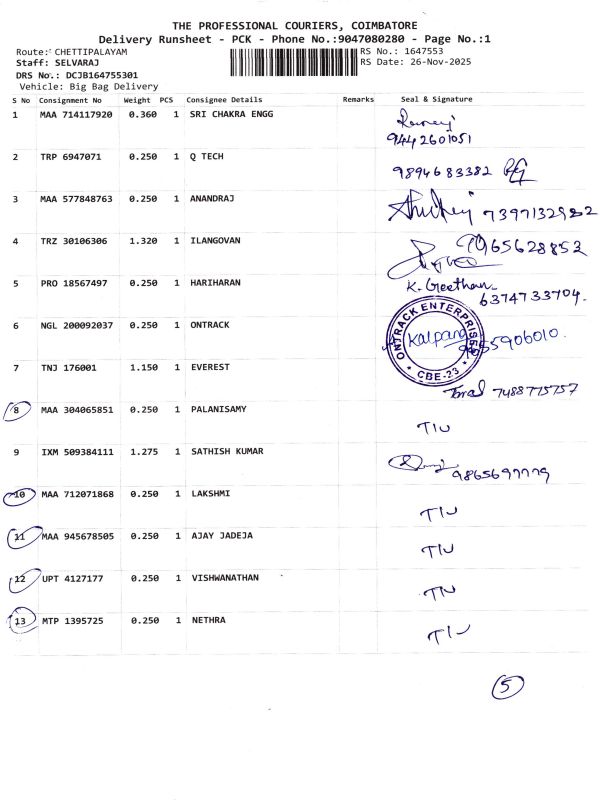 THE PROFESSIONAL COURIERS, COIMBATORE
Delivery Runsheet - PCK - Phone No.:9047080280 - Page No.:1
Route: CHETTIPALAYAM RS No.: 1647553
Staff: SELVARAJ RS Date: 26-Nov-2025
DRS No.: DCJB164755301
Vehicle: Big Bag Delivery
S No Consignment No Weight PCS Consignee Details Remarks Seal & Signature
1 MAA 714117920 0.360 1 SRI CHAKRA ENGG
9442601051
2 TRP 6947071 0.250 1 Q TECH
9894683382
3 MAA 577848763 0.250 1 ANANDRAJ
4 TRZ 30106306 1.320 1 ILANGOVAN
5 PRO 18567497 0.250 1 HARIHARAN
K. Geethan
6374733704.
6 NGL 200092037 0.250 1 ONTRACK
ONTRACK ENTERPRISES
Kalpana
CBE-23
7 TNJ 176001 1.150 1 EVEREST
7488775757
8 MAA 304065851 0.250 1 PALANISAMY
TIU
9 IXM 509384111 1.275 1 SATHISH KUMAR
10 MAA 712071868 0.250 1 LAKSHMI
TIU
11 MAA 945678505 0.250 1 AJAY JADEJA
TIU
12 UPT 4127177 0.250 1 VISHWANATHAN
TIU
13 MTP 1395725 0.250 1 NETHRA
TIU
5